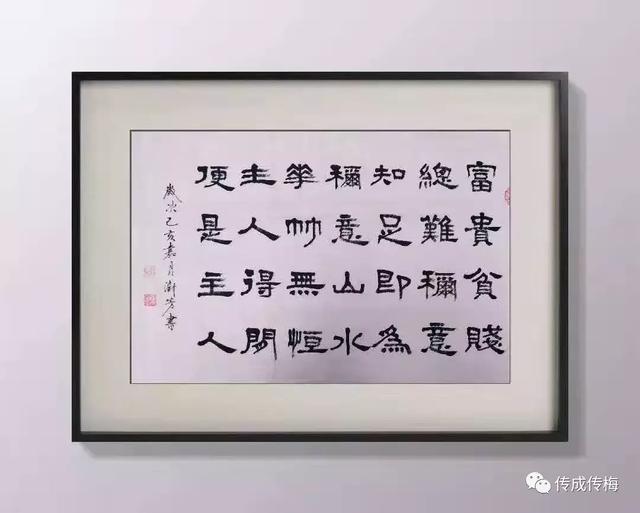 富貴貧賤
總難穪意
知足即為
穪意山水
華竹無恒
主人得閒
便是主人
歲次己亥嘉月澍芳書
传成传梅